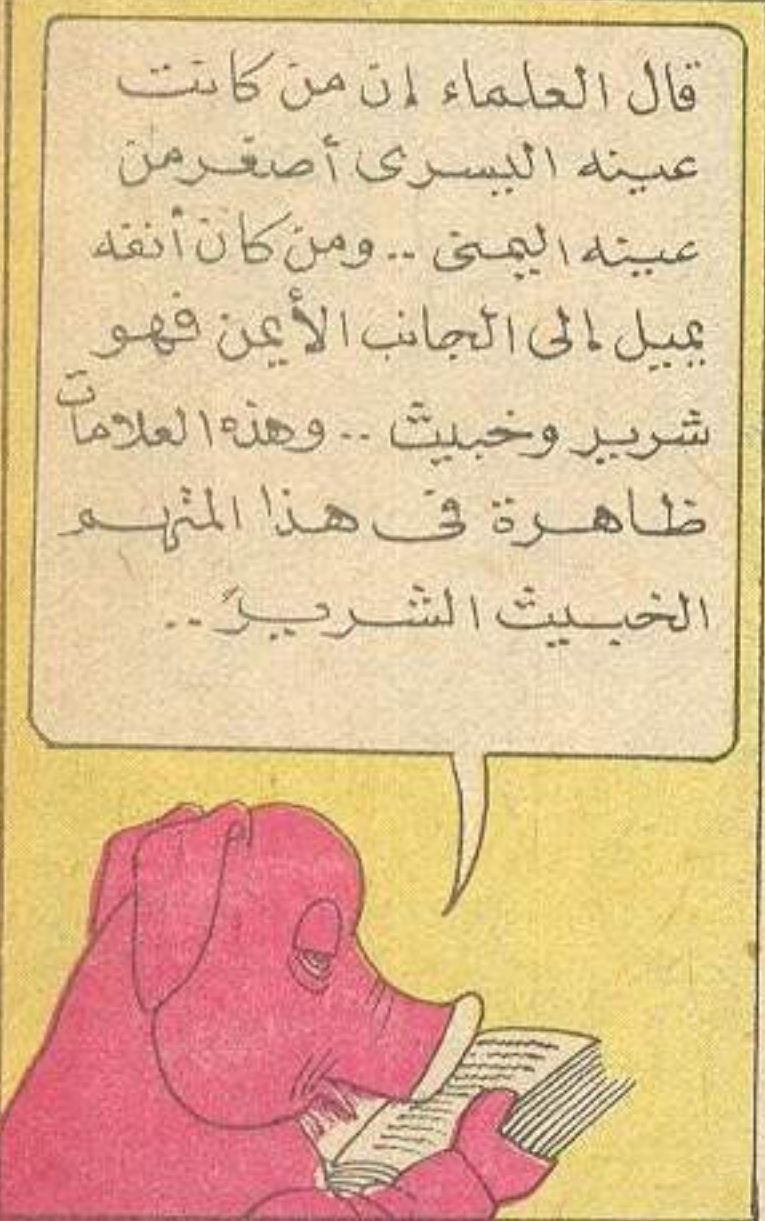 قال العلماء إن من كانت
عينه اليسرى أصغر من
عينه اليمنى .. ومن كان أنفه
يميل إلى الجانب الأيمن فهو
شرير وخبيث .. وهذه العلامات
ظاهرة فى هذا المتهم
الخبيث الشرير ..